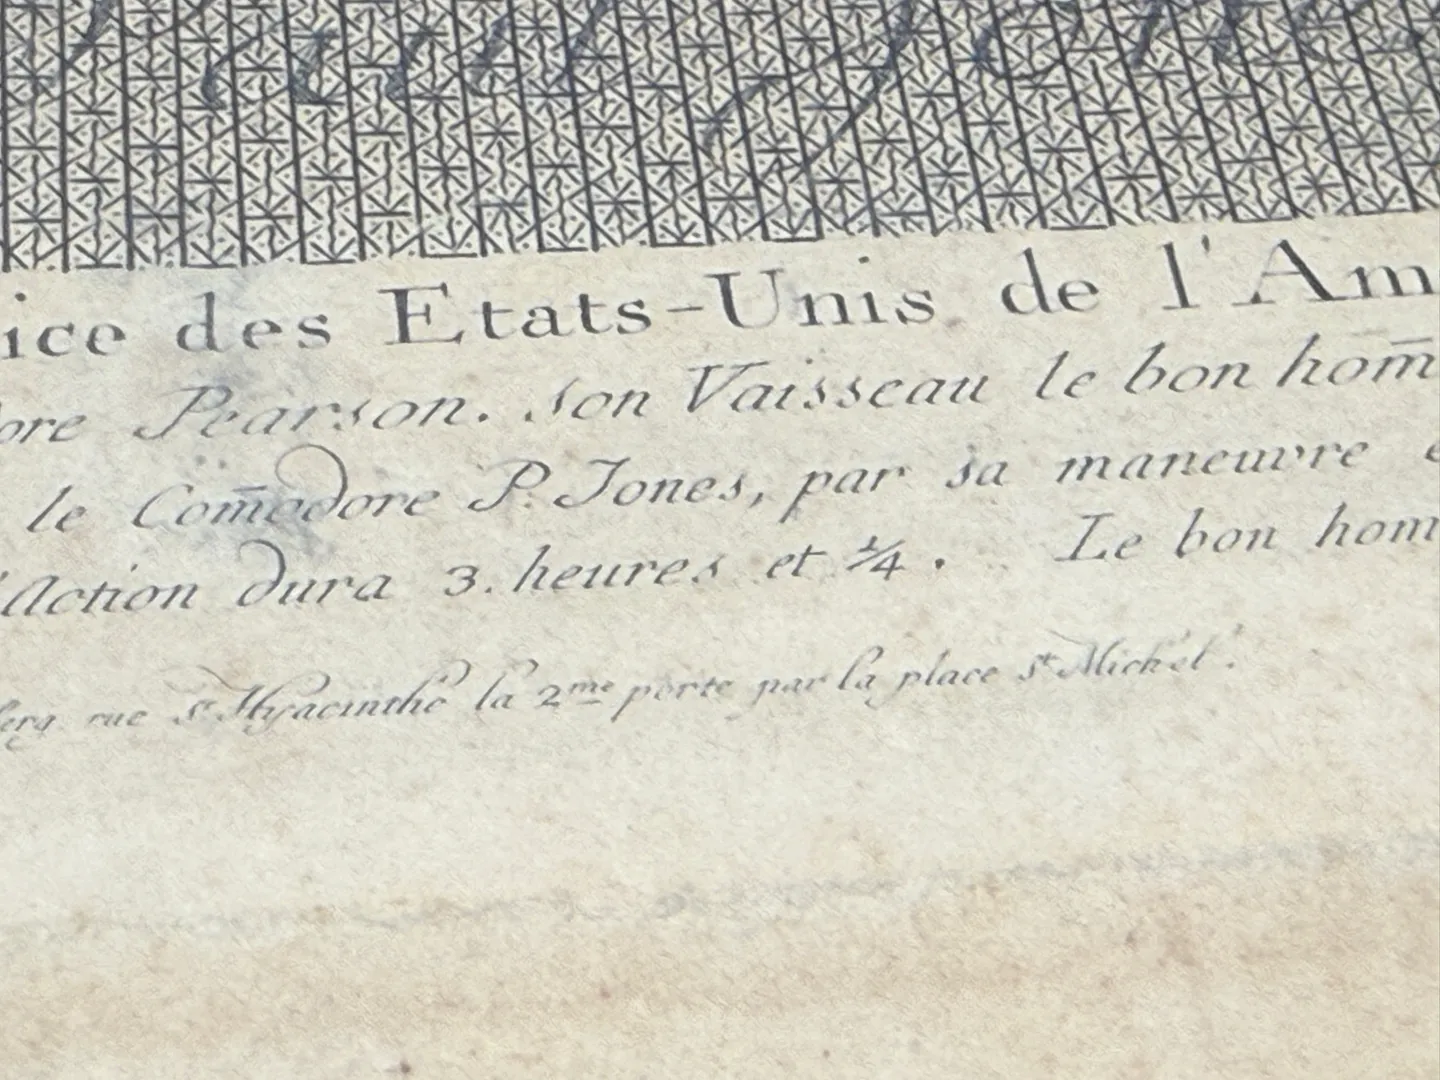 Paul Jone
ice des Etats-Unis de l'Am
ore Pearson. son Vaisseau le bon hom̄
le Com̄odore P. Jones, par sa maneuvre e
'Action dura 3. heures et ¼. Le bon hom
rue St. Hyacinthe la 2me porte par la place St. Michel.